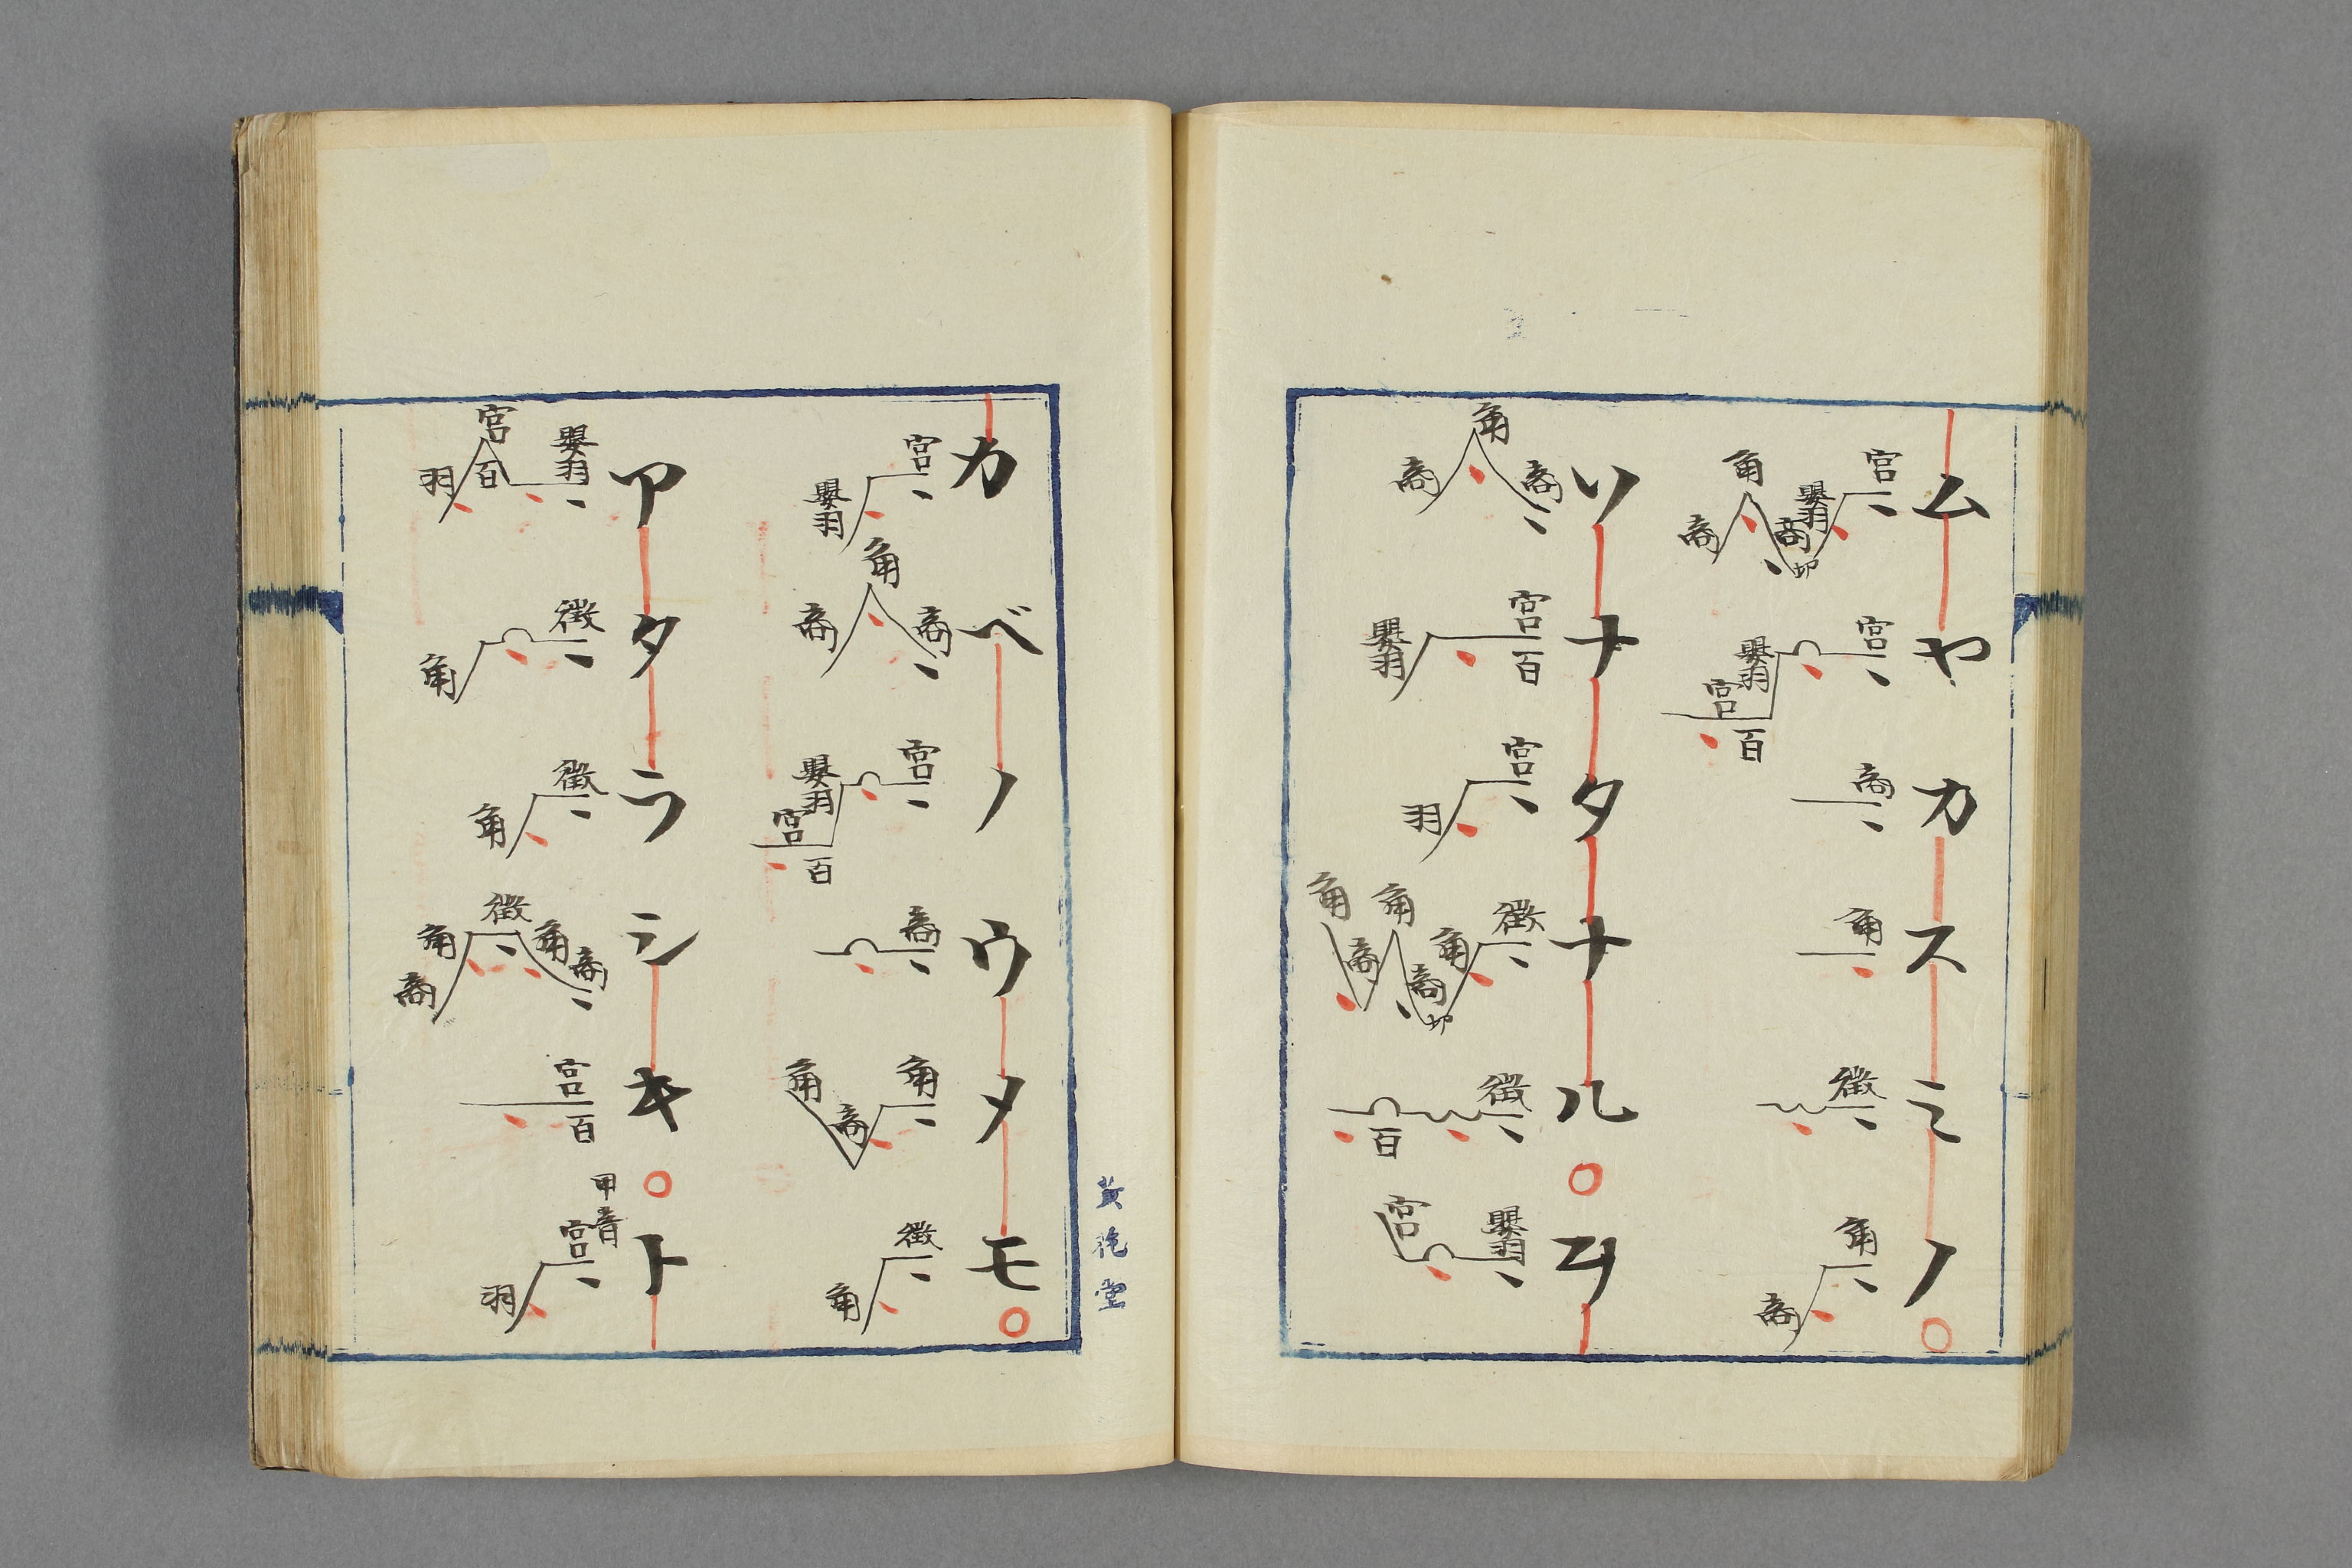 ムヤカスミノ
宮 嬰羽 商 角 商
宮 嬰羽 宮 百
商
角
徴
角 商
ソナタナルヲ
商 角 商
宮 百 嬰羽
宮 羽
徴 角 商 角 商 角
徴 百
嬰羽 宮
カベノウメモ
宮 嬰羽
商 角 商
宮 嬰羽 宮 百
商
角 商 角
徴 角
アタラシキト
嬰羽 百 宮 羽
徴 角
徴 角
商 角 徴 角 商
宮 百
甲音 宮 羽
黄袍堂